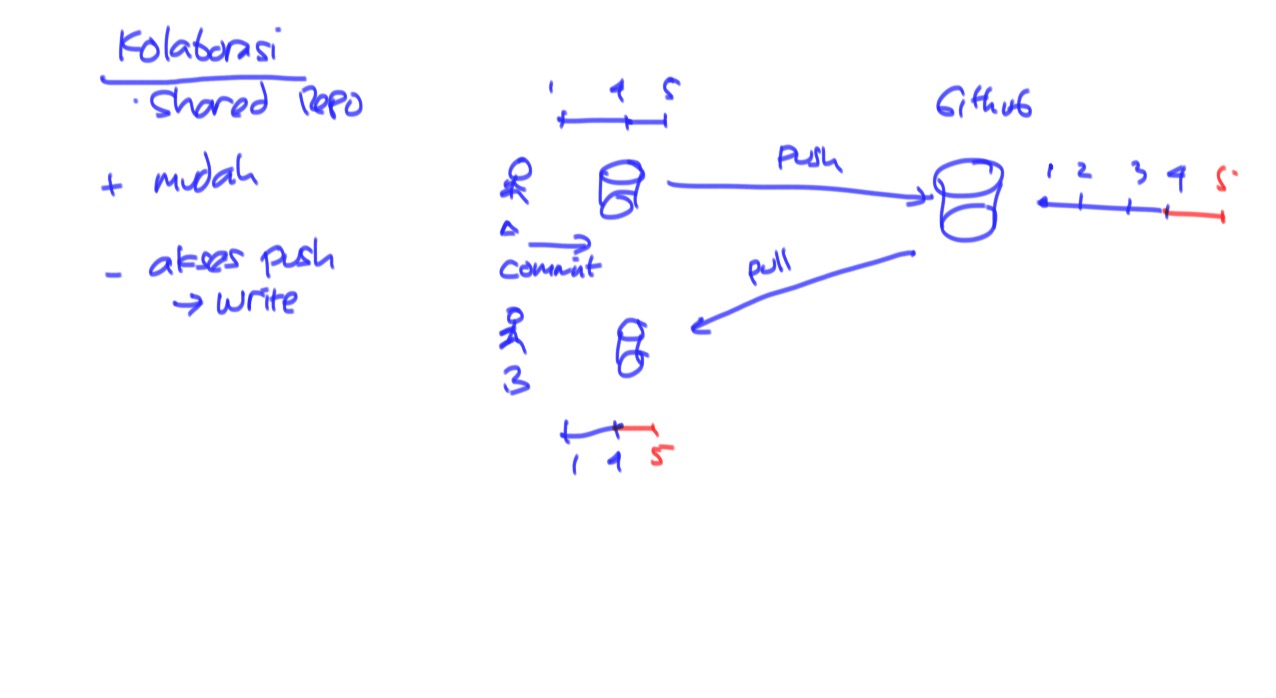 Kolaborasi
· Shared Repo
+ mudah
- akses push
→ write
1 4 5
Github
Push
1 2 3 4 5
A
commit
pull
B
1 4 5